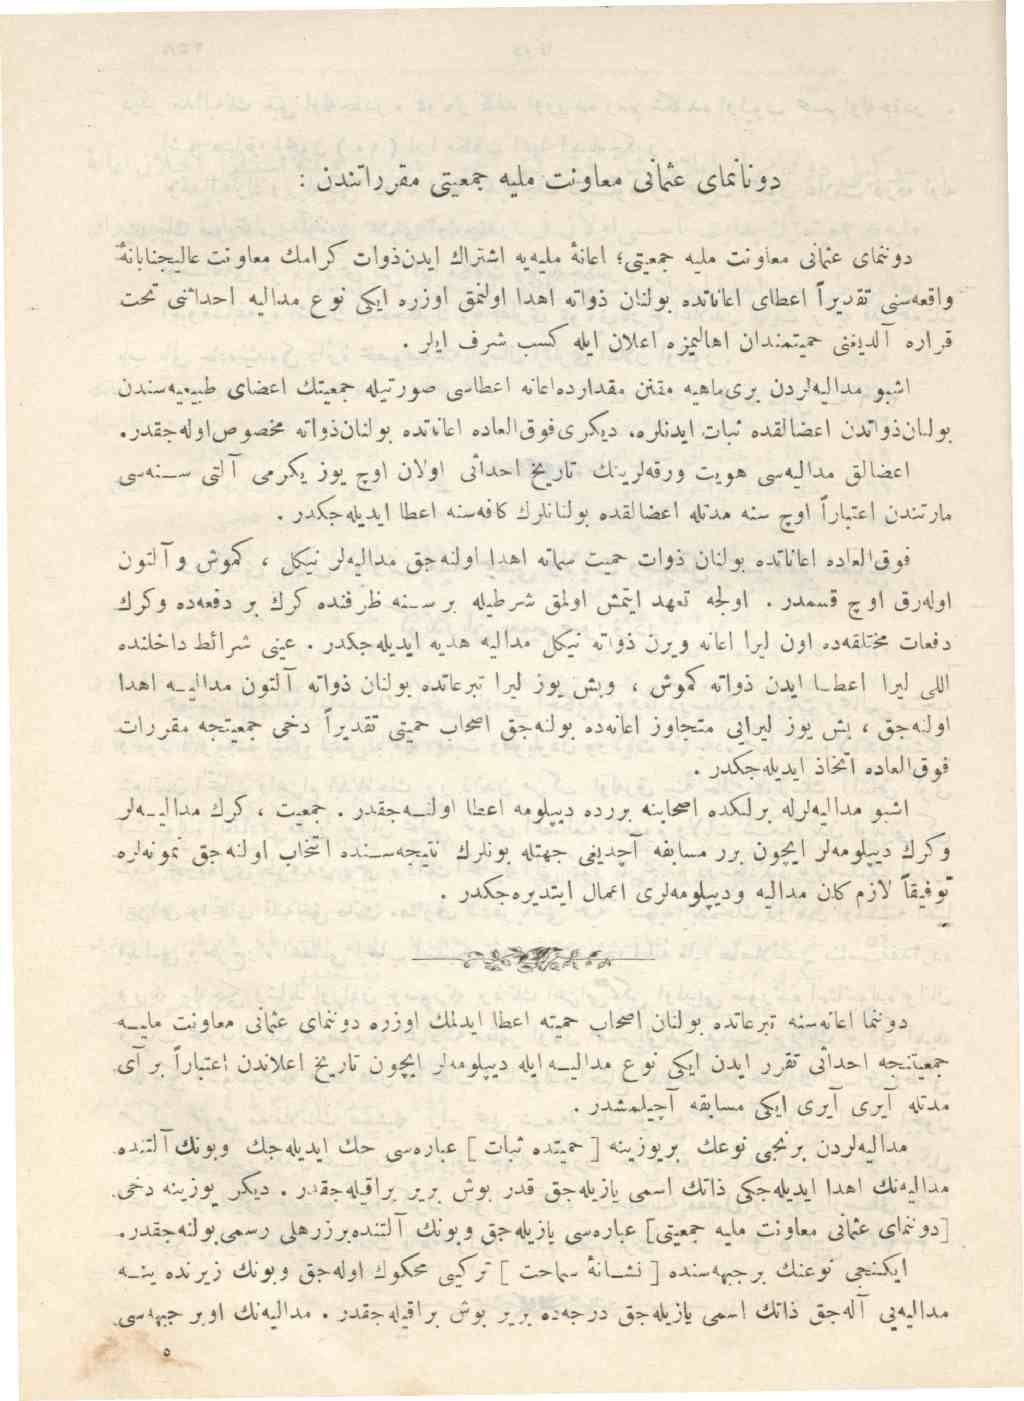 دونانمای عثمانی معاونت ملیه جمعیتی مقرراتندن :
دوننمای عثمانی معاونت ملیه جمعیتی؛ اعانهٔ ملیه‌یه اشتراك ایدن ذوات كرامك معاونت عالیجنابانهٔ
واقعه‌سنی تقدیراً اعطای اعاناتده بولنان ذواته اهدا اولنمق اوزره ایكی نوع مدالیه احداثنی تحت
قراره آلدیغنی حمیتمندان اهالیمزه اعلان ایله كسب شرف ایلر .
اشبو مدالیه‌لردن بری ماهیه مقنن مقدارده اعانه اعطاسی صورتیله جمعیتك اعضای طبیعیه‌سندن
بولنان ذواتدن اعضالقده ثبات ایدنلره، دیكری فوق‌العاده اعاناتده بولنان ذواته مخصوص اوله‌جقدر.
اعضالق مدالیه‌سی هویت ورقه‌لرینك تاریخ احداثی اولان اوچ یوز یكرمی آلتی سنه‌سی
مارتندن اعتباراً اوچ سنه مدتله اعضالقده بولنانلرك كافه‌سنه اعطا ایدیله‌جكدر .
فوق‌العاده اعاناتده بولنان ذوات حمیت سماته اهدا اولنه‌جق مدالیه‌لر نیكل ، كموش و آلتون
اوله‌رق اوچ قسمدر . اولجه تعهد ایتمش اولمق شرطیله بر سنه ظرفنده كرك بر دفعه‌ده و كرك
دفعات مختلفه‌ده اون لیرا اعانه ویرن ذواته نیكل مدالیه هدیه ایدیله‌جكدر . عینی شرائط داخلنده
اللی لیرا اعطا ایدن ذواته كموش ، وبش یوز لیرا تبرعاتده بولنان ذواته آلتون مدالیه اهدا
اولنه‌جق ، بش یوز لیرایی متجاوز اعانه‌ده بولنه‌جق اصحاب حمیتی تقدیراً دخی جمعیتجه مقررات
فوق‌العاده اتخاذ ایدیله‌جكدر .
اشبو مدالیه‌لرله برلكده اصحابنه برده دیپلومه اعطا اولنه‌جقدر . جمعیت ، كرك مدالیه‌لر
وكرك دیپلومه‌لر ایچون برر مسابقه آچدیغی جهتله بونلرك نتیجه‌سنده انتخاب اولنه‌جق نمونه‌لره
توفیقاً لازم كلن مدالیه ودیپلومه‌لری اعمال ایتدیره‌جكدر .
دوننما اعانه‌سنه تبرعاتده بولنان اصحاب حمیته اعطا ایدلمك اوزره دوننمای عثمانی معاونت ملیه
جمعیتنجه احداثی تقرر ایدن ایكی نوع مدالیه ایله دیپلومه‌لر ایچون تاریخ اعلاندن اعتباراً بر آی
مدتله آیری آیری ایكی مسابقه آچیلمشدر .
مدالیه‌لردن برنجی نوعك بریوزینه [ حمیتده ثبات ] عباره‌سی حك ایدیله‌جك وبونك آلتنده
مدالیه‌نك اهدا ایدیله‌جكی ذاتك اسمی یازیله‌جق قدر بوش بریر براقیله‌جقدر . دیكر یوزینه دخی
[دوننمای عثمانی معاونت ملیه جمعیتی] عباره‌سی یازیله‌جق وبونك آلتنده بر زرهلی رسمی بولنه‌جقدر.
ایكنجی نوعنك برجبهه‌سنده [ نشانهٔ سماحت ] تركیبی محكوك اوله‌جق وبونك زیرنده ینه
مدالیه‌یی آله‌جق ذاتك اسمی یازیله‌جق درجه‌ده بریر بوش براقیله‌جقدر . مدالیه‌نك اوبر جبهه‌سی
٥